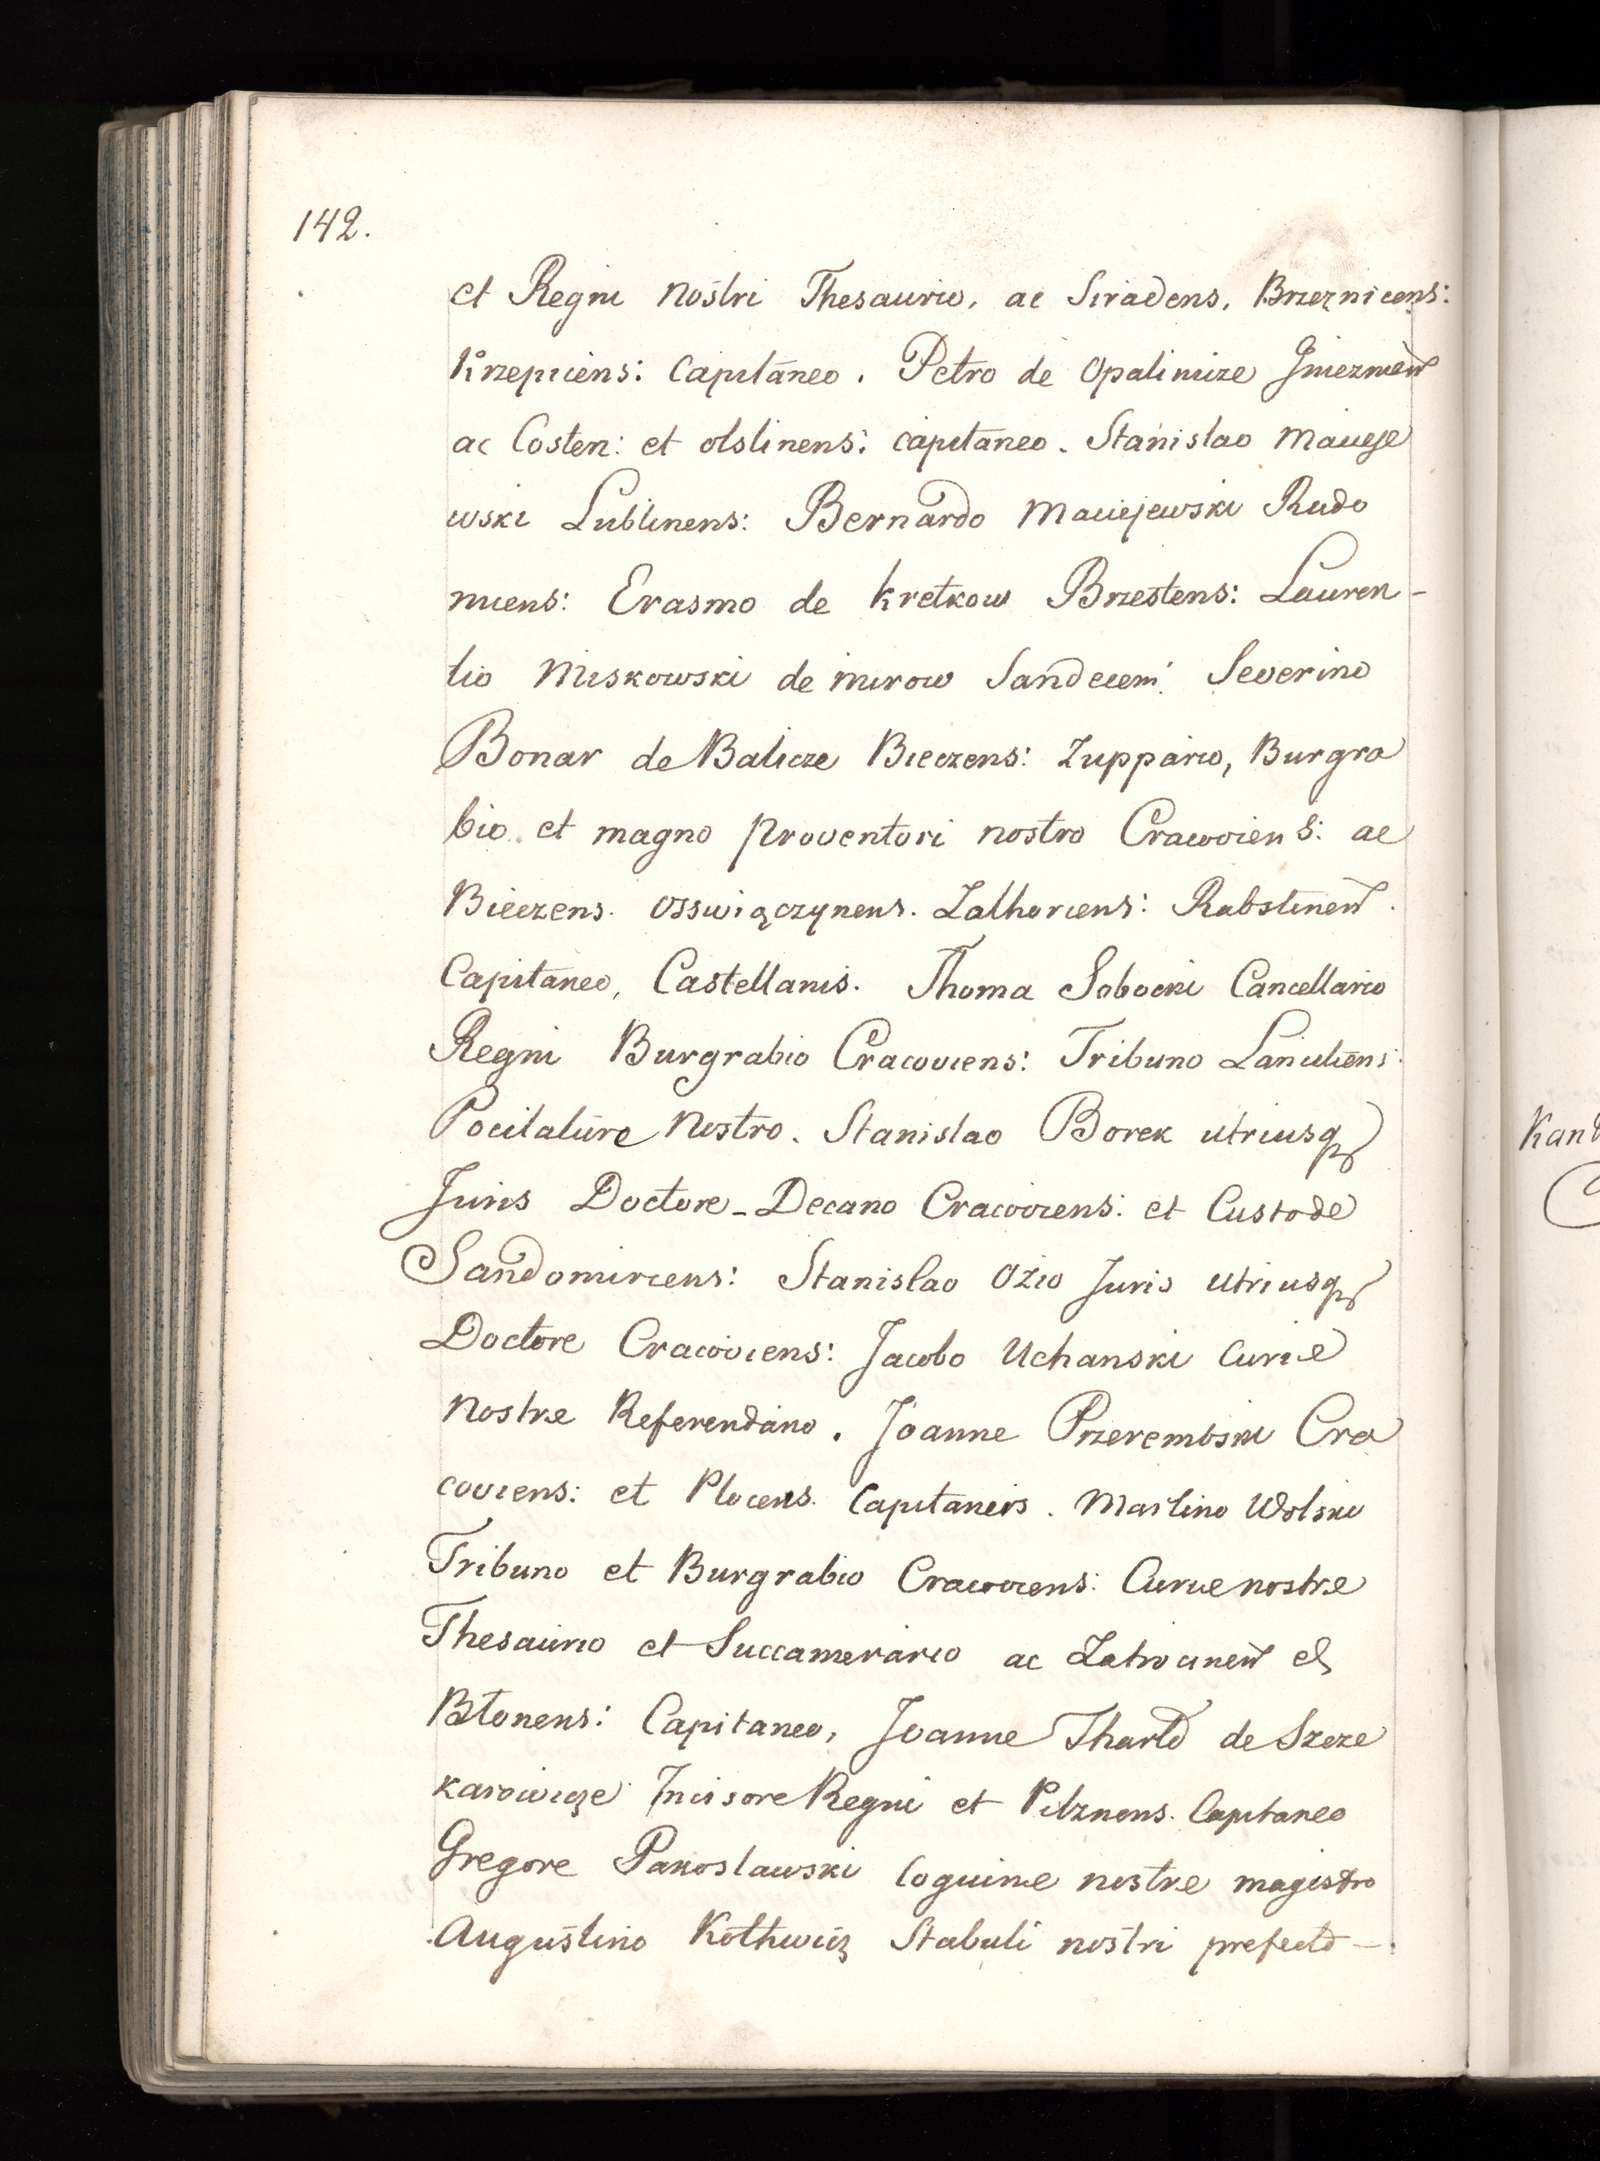 142.
et Regni nostri Thesaurio, ac Siradens, Brzeznicens:
Krzepiciens: Capitaneo. Petro de Opalinice Gnieznień
ac Costen: et olslinens: capitaneo. Stanislao Macieje
wski Lublinens: Bernardo Maciejewski Rado
miens: Erasmo de Kretkow Brzestens: Lauren-
tio Miskowski de Mirow Sandecens: Severino
Bonar de Balicze Bieczens: Zuppario, Burgra
bio et magno Proventori nostro Cracoviens: ac
Bieczens. Osswięczynens. Zathoriens: Rabstinens.
Capitaneo, Castellanis. Thoma Sobocki Cancellario
Regni Burgrabio Cracoviens: Tribuno Laniciens:
Pocilatore Nostro. Stanislao Borek utriusq
Juris Doctore - Decano Cracoviens: et Custode
Sandomiriens: Stanislao Ozio Juris utriusq
Doctore Cracoviens: Jacobo Uchanski Curie
Nostre Referendario. Joanne Przerembski Cra
coviens: et Plocens. Capitaneis. Martino Wolski
Tribuno et Burgrabio Cracoviens: Curie nostre
Thesaurio et Succamerario ac Latrocinens et
Blonens: Capitaneo, Joanne Tharlo de Szcze
karowicze Incisore Regni et Pilznens. Capitaneo
Gregore Pakoslawski Coquine nostre magistro
Augustino Kothwicz Stabuli nostri prefecto -
Kan